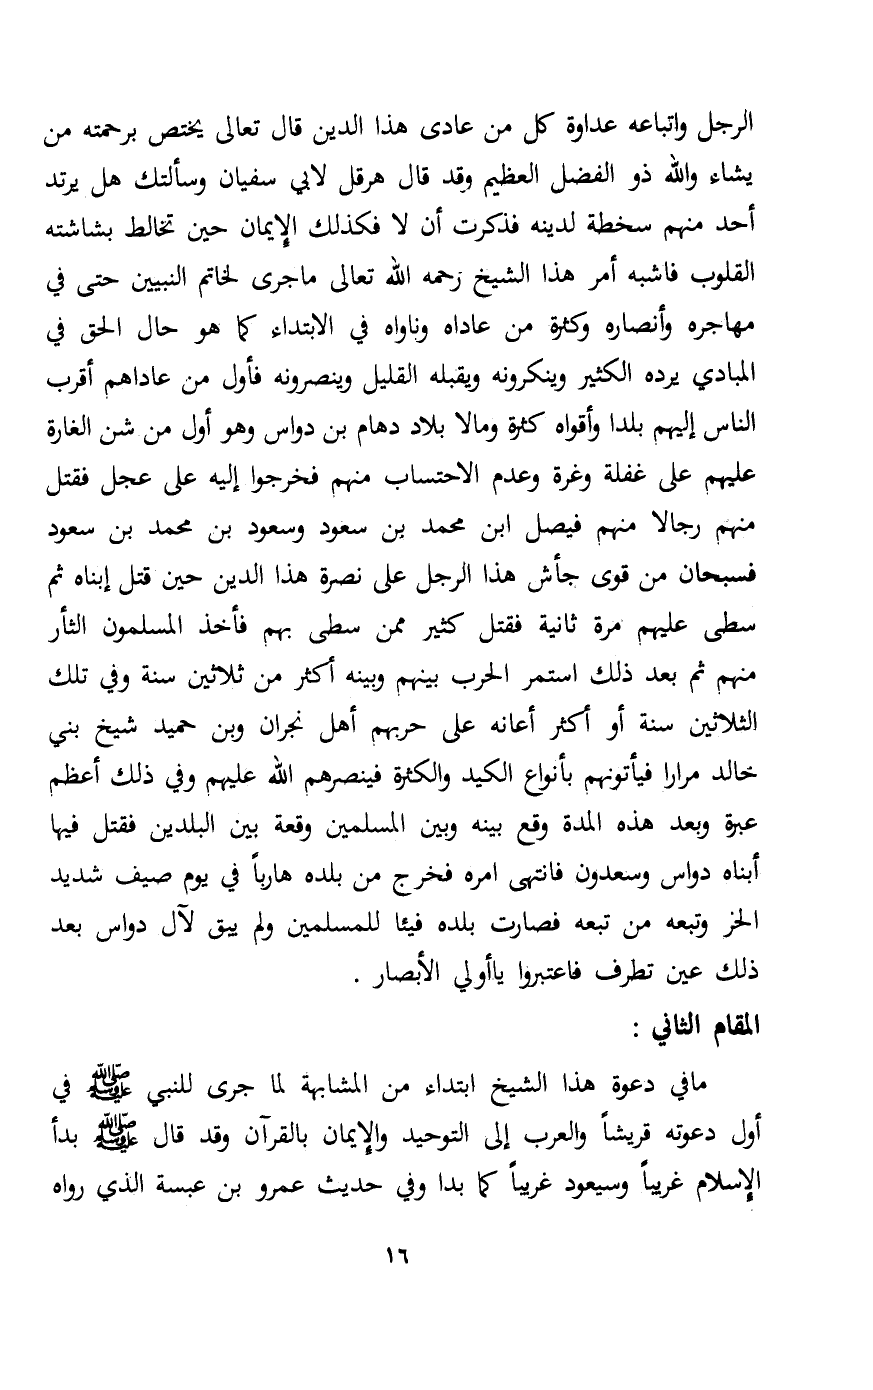 الرجل واتباعه عداوة كل من عادى هذا الدين قال تعالى يختص برحمته من
يشاء والله ذو الفضل العظيم وقد قال هرقل لابي سفيان وسألتك هل يرتد
أحد منهم سخطة لدينه فذكرت أن لا فكذلك الإيمان حين تخالط بشاشته
القلوب فاشبه أمر هذا الشيخ رحمه الله تعالى ماجرى لخاتم النبيين حتى في
مهاجره وأنصاره وكثرة من عاداه وناواه في الابتداء كما هو حال الحق في
المبادي يرده الكثير وينكرونه ويقبله القليل وينصرونه فأول من عاداهم أقرب
الناس إليهم بلدا وأقواه كثرة ومالا بلاد دهام بن دواس وهو أول من شن الغارة
عليهم على غفلة وغرة وعدم الاحتساب منهم فخرجوا إليه على عجل فقتل
منهم رجالا منهم فيصل ابن محمد بن سعود وسعود بن محمد بن سعود
فسبحان من قوى جأش هذا الرجل على نصرة هذا الدين حين قتل إبناه ثم
سطى عليهم مرة ثانية فقتل كثير ممن سطى بهم فأخذ المسلمون الثأر
منهم ثم بعد ذلك استمر الحرب بينهم وبينه أكثر من ثلاثين سنة وفي تلك
الثلاثين سنة أو أكثر أعانه على حربهم أهل نجران وبن حميد شيخ بني
خالد مرارا فيأتونهم بأنواع الكيد والكثرة فينصرهم الله عليهم وفي ذلك أعظم
عبرة وبعد هذه المدة وقع بينه وبين المسلمين وقعة بين البلدين فقتل فيها
أبناه دواس وسعدون فانتهى امره فخرج من بلده هارباً في يوم صيف شديد
الحز وتبعه من تبعه فصارت بلده فيئا للمسلمين ولم يبق لآل دواس بعد
ذلك عين تطرف فاعتبروا ياأولي الأبصار .
المقام الثاني :
مافي دعوة هذا الشيخ ابتداء من المشابهة لما جرى للنبي ﷺ في
أول دعوته قريشاً والعرب إلى التوحيد والإيمان بالقرآن وقد قال ﷺ بدأ
الإسلام غريباً وسيعود غريباً كما بدا وفي حديث عمرو بن عبسة الذي رواه
١٦